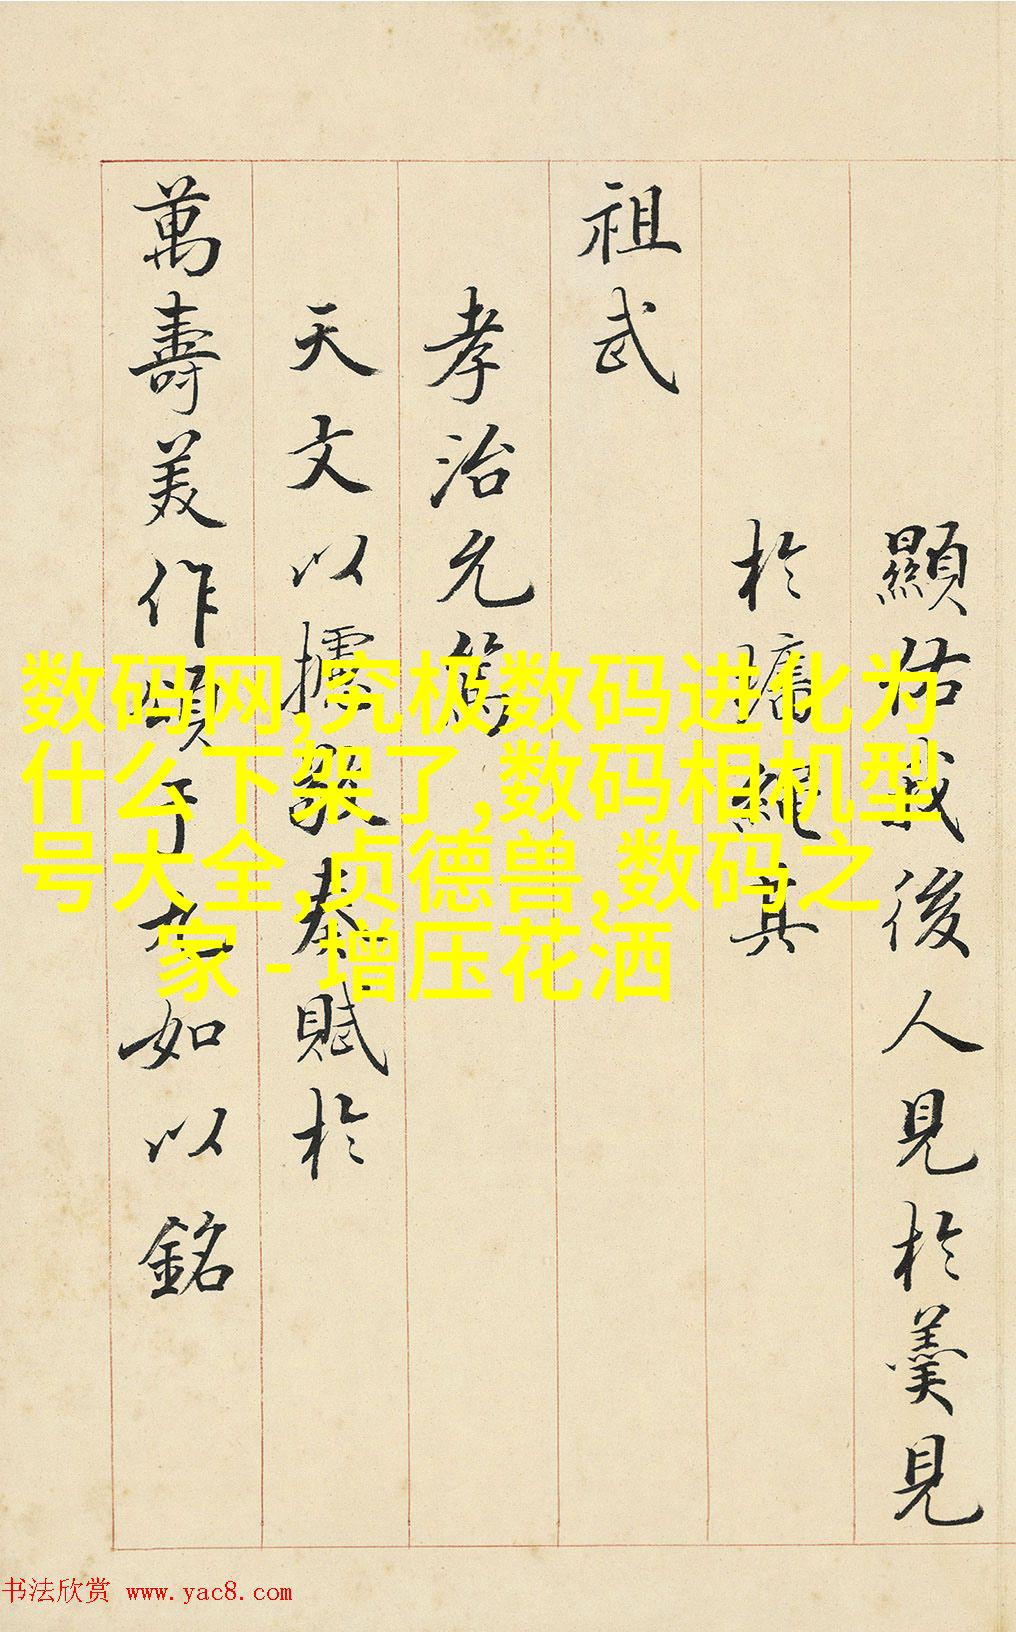 顯佑我後人見於羹見
於墻繩其
祖武
孝治允篤
天文以攄奏賦於
萬壽美作頌于九如以銘
数码网,究极数码进化为
什么下架了,数码相机型
号大全,贞德兽,数码之
家 - 增压花洒
书法欣赏 www.yac8.com